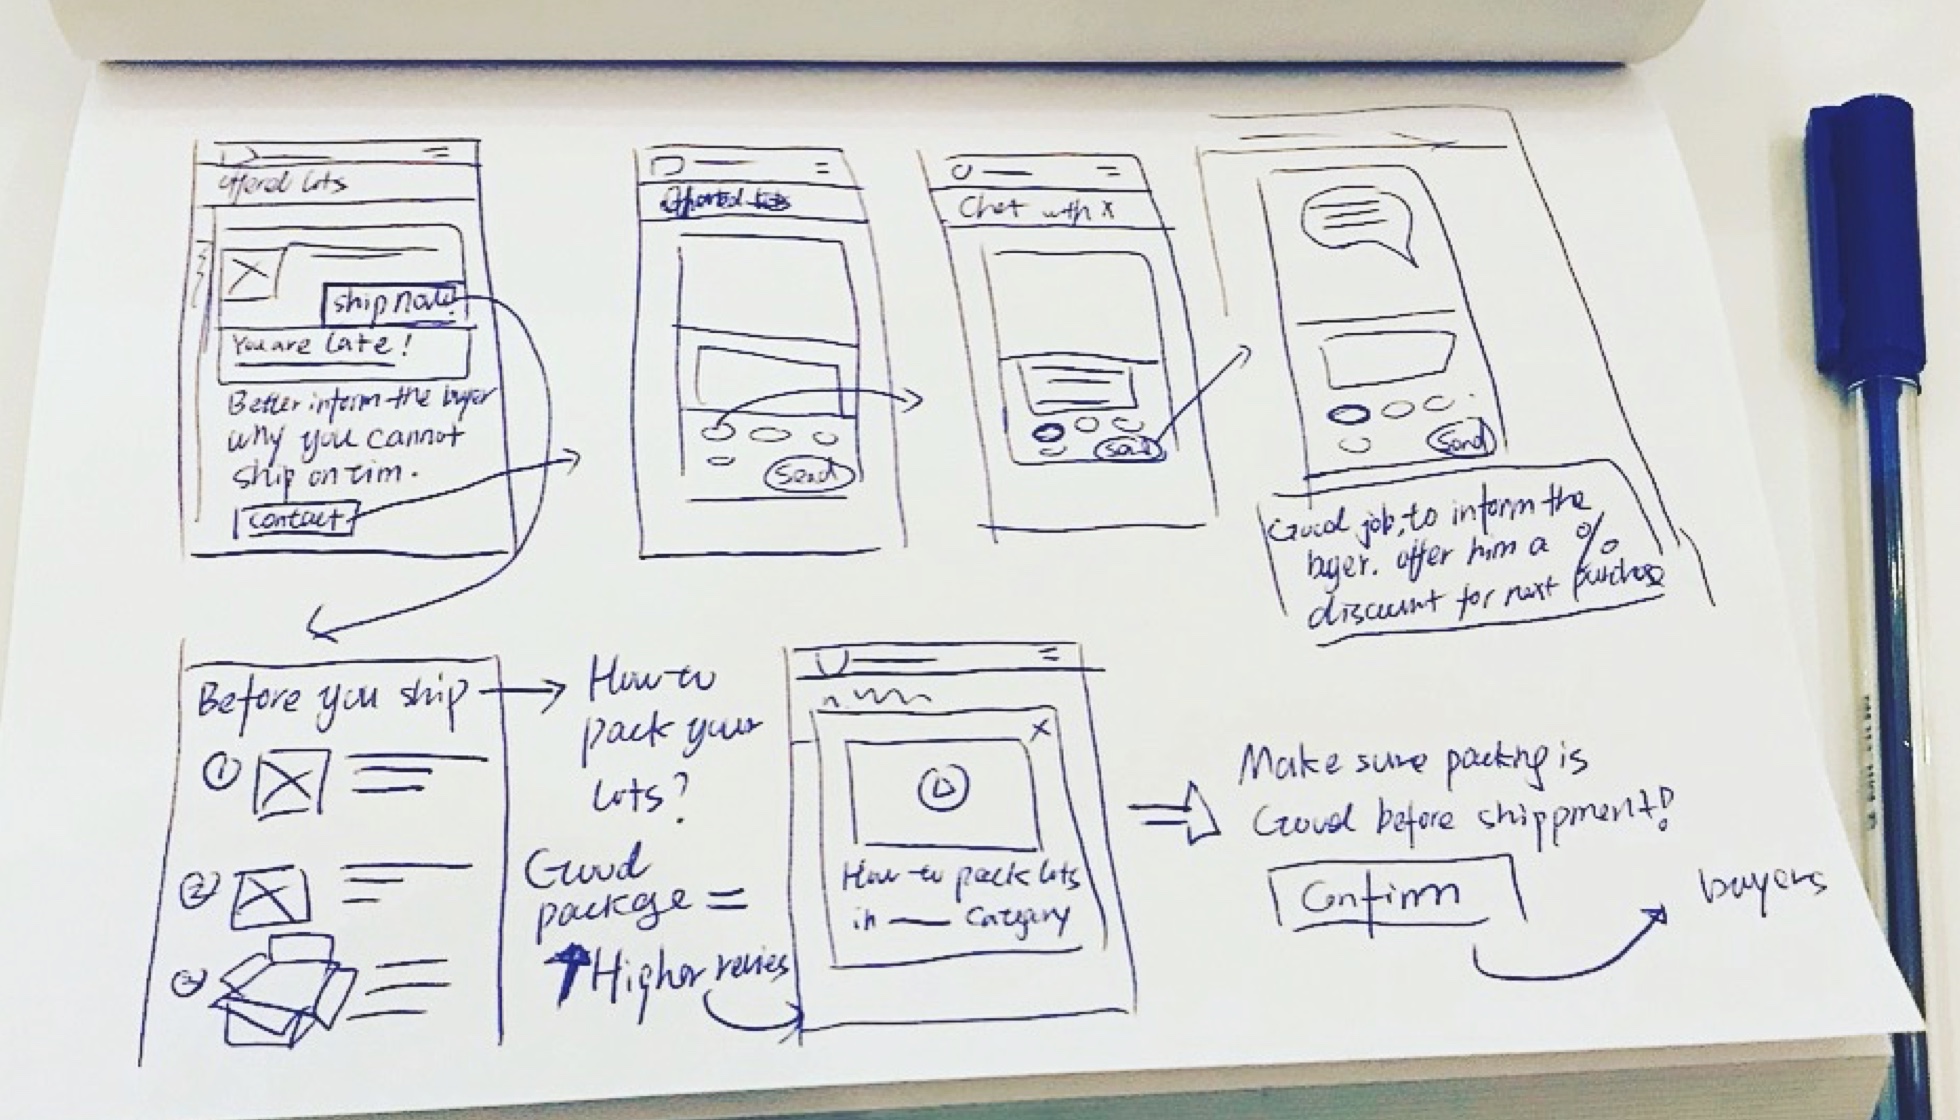 offered lots
ship now!
You are late!
Better inform the buyer
why you cannot
ship on tim.
contact
Send
Chat with X
Send
Send
Good job, to inform the
buyer. offer him a %
discount for next purchase
Before you ship
1
2
3
How to
pack your
lots?
Good
package =
Higher
How to pack lots
in — Category
Make sure packing is
Good before shippment!
Confirm
buyers